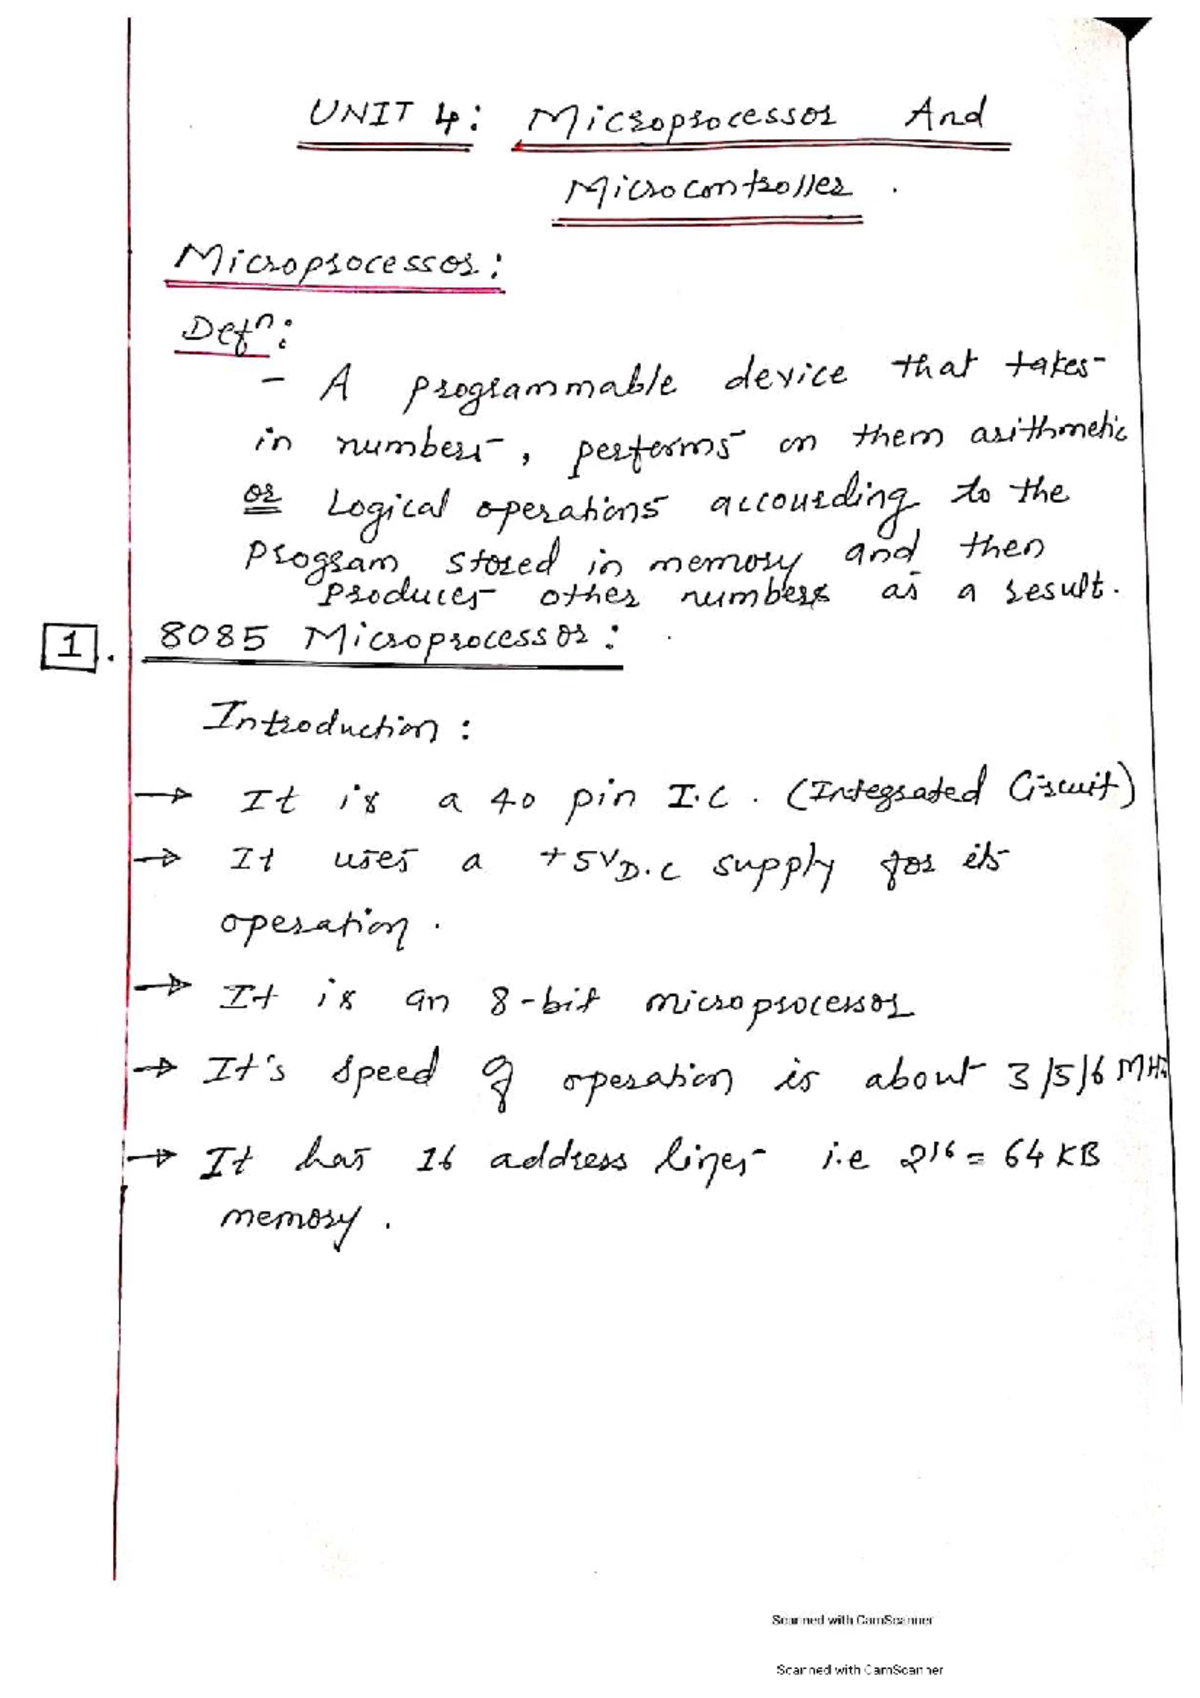 UNIT 4: Microprocessor And
Microcontroller.
Microprocessor:
Defⁿ:
- A programmable device that takes
in numbers, performs on them arithmetic
or Logical operations accourding to the
program stored in memory and then
produces other numbers as a result.
1. 8085 Microprocessor:
Introduction:
→ It is a 40 pin I.C. (Integrated Circuit)
→ It uses a +5V D.C supply for its
operation.
→ It is an 8-bit microprocessor
→ It's speed of operation is about 3/5/6 MHz
→ It has 16 address lines i.e 2¹⁶ = 64 KB
memory.
Scanned with CamScanner
Scanned with CamScanner